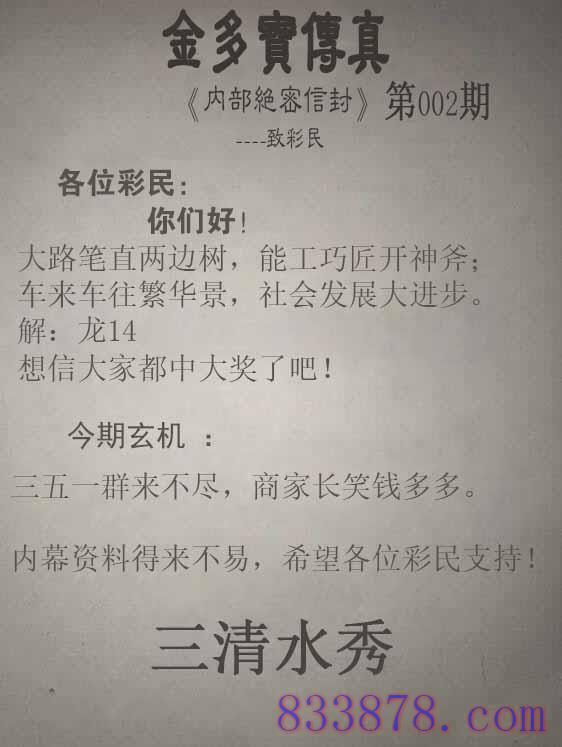 金多寶傳真
《内部絕密信封》第002期
----致彩民
各位彩民:
你们好!
大路笔直两边树，能工巧匠开神斧；
车来车往繁华景，社会发展大进步。
解：龙14
想信大家都中大奖了吧！
今期玄机 ：
三五一群来不尽，商家长笑钱多多。
内幕资料得来不易，希望各位彩民支持！
三清水秀
833878.com